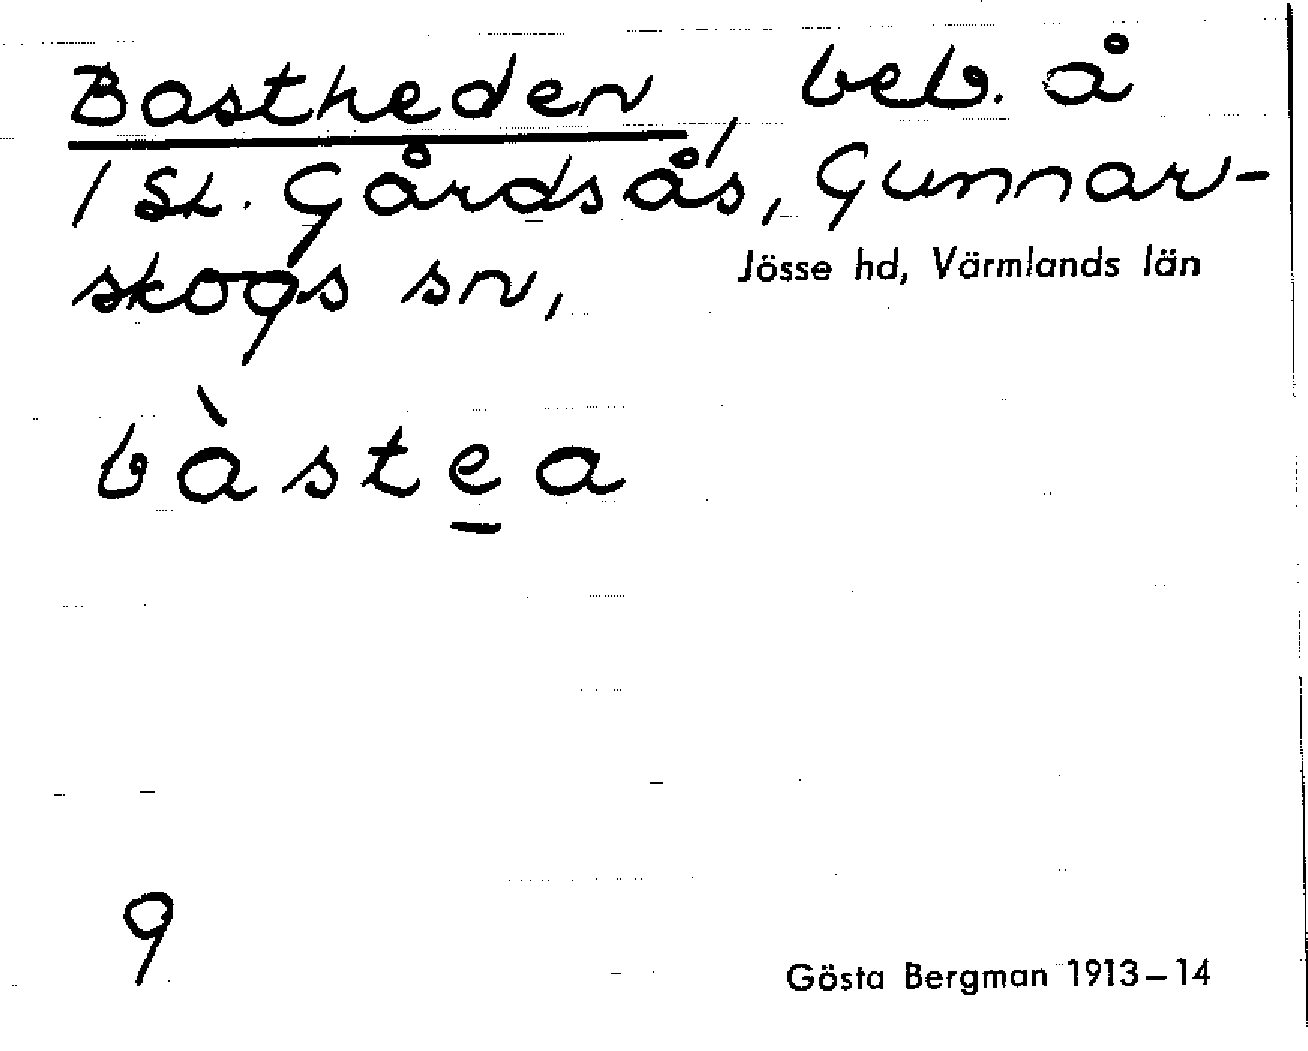 Bastheden, beb. å
/ St. Gårdsås, Gunnar-
skogs sn, Jösse hd, Värmlands län
bàste̲a
9
Gösta Bergman 1913–14